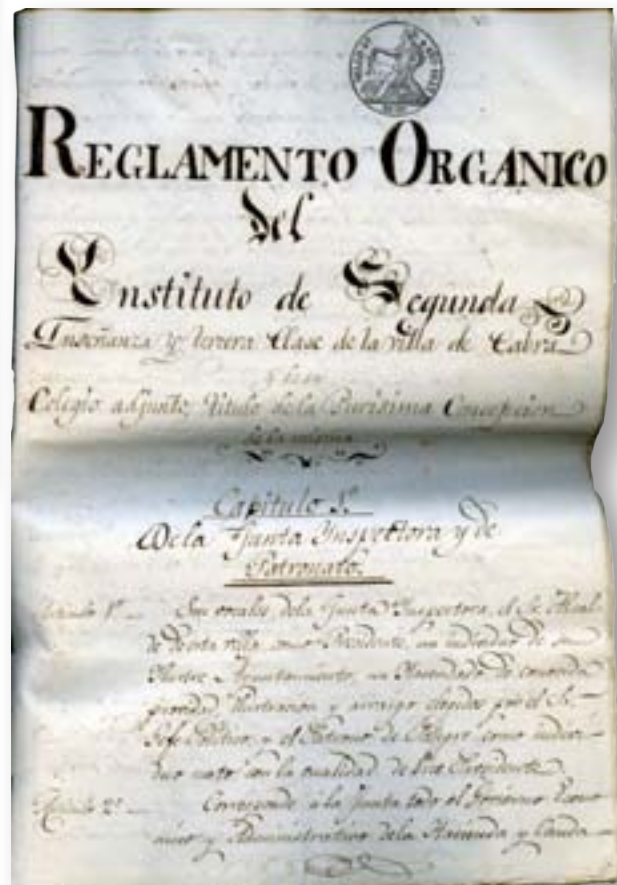 REGLAMENTO ORGANICO
del
Ynstituto de Segunda
Enseñanza y tercera Clase de la villa de Cabra
y de su
Colegio adjunto, titulo de la Purisima Concepcion
de la misma
Capitulo 1.
De la Junta Ynspectora y de
Patronato.
Articulo 1º Son vocales, de la Junta Ynspectora, el Sr. Alcal
de de esta villa como Presidente, un individuo de su
Ylustre Ayuntamiento, un Hacendado de conocida
providad Ylustracion y arraigo elegidos por el Sr.
Jefe Politico y el Patrono de como indivi
duo nato con la cualidad de Vice Presidente
Articulo 2º Corresponde a la Junta todo el Govierno Econo
mico y Administrativo de la Hacienda y Cauda